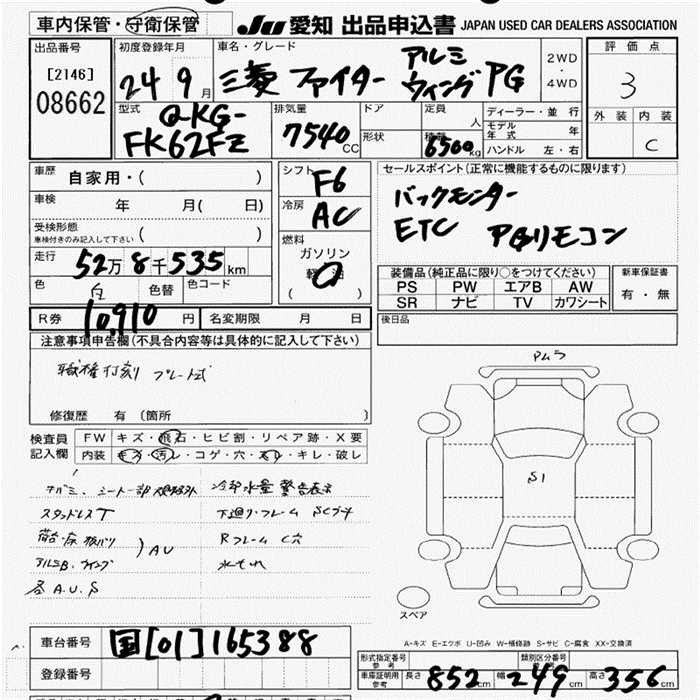 車内保管・守衛保管 JU 愛知 出品申込書 JAPAN USED CAR DEALERS ASSOCIATION
出品番号 初度登録年月 車名・グレード 評価点
[2146] 24 9月 三菱 ファイター アルミウィング PG 2WD・4WD 3
08662
型式 排気量 ドア 定員 人 ディーラー・並行 外装 内装
QKG-FK62FZ 7540CC 形状 積載 6500kg モデル年式 年 C
ハンドル 左・右
車歴 自家用・( ) シフト F6 セールスポイント(正常に機能するものに限ります)
車検 年 月( 日) 冷房 AC バックモンター
受検形態 ( ) ETC PGリモコン
車検付きのみ記入して下さい
走行 52万8千535km 燃料 ガソリン 軽油 ( )
装備品(純正品に限り○をつけてください) 新車保証書
色 白 色替 色コード PS PW エアB AW 有・無
SR ナビ TV カワシート
R券 10,910円 名変期限 月 日 後日品
注意事項申告欄(不具合内容等は具体的に記入して下さい)
職権打刻 プレート式 Pムラ
修復歴 有(箇所 )
検査員記入欄 FW キズ・飛石・ヒビ割・リペア跡・X要
内装 キズ・汚レ・コゲ・穴・スレ・キレ・破レ
S1
冷却水量 警告表示
スタッドレスT 下廻り・フレーム SC
Rフレーム C穴
) AU
アルミB.ウイング 水もれ
各A.U.S
スペア
A-キズ E-エクボ U-凹み W-補修跡 S-サビ C-腐食 XX-交換済
車台番号 国[01]165388
登録番号
形式指定番号 参考 類別区分番号
車庫証明用 参考 長さ 852cm 幅 249cm 高さ 356cm